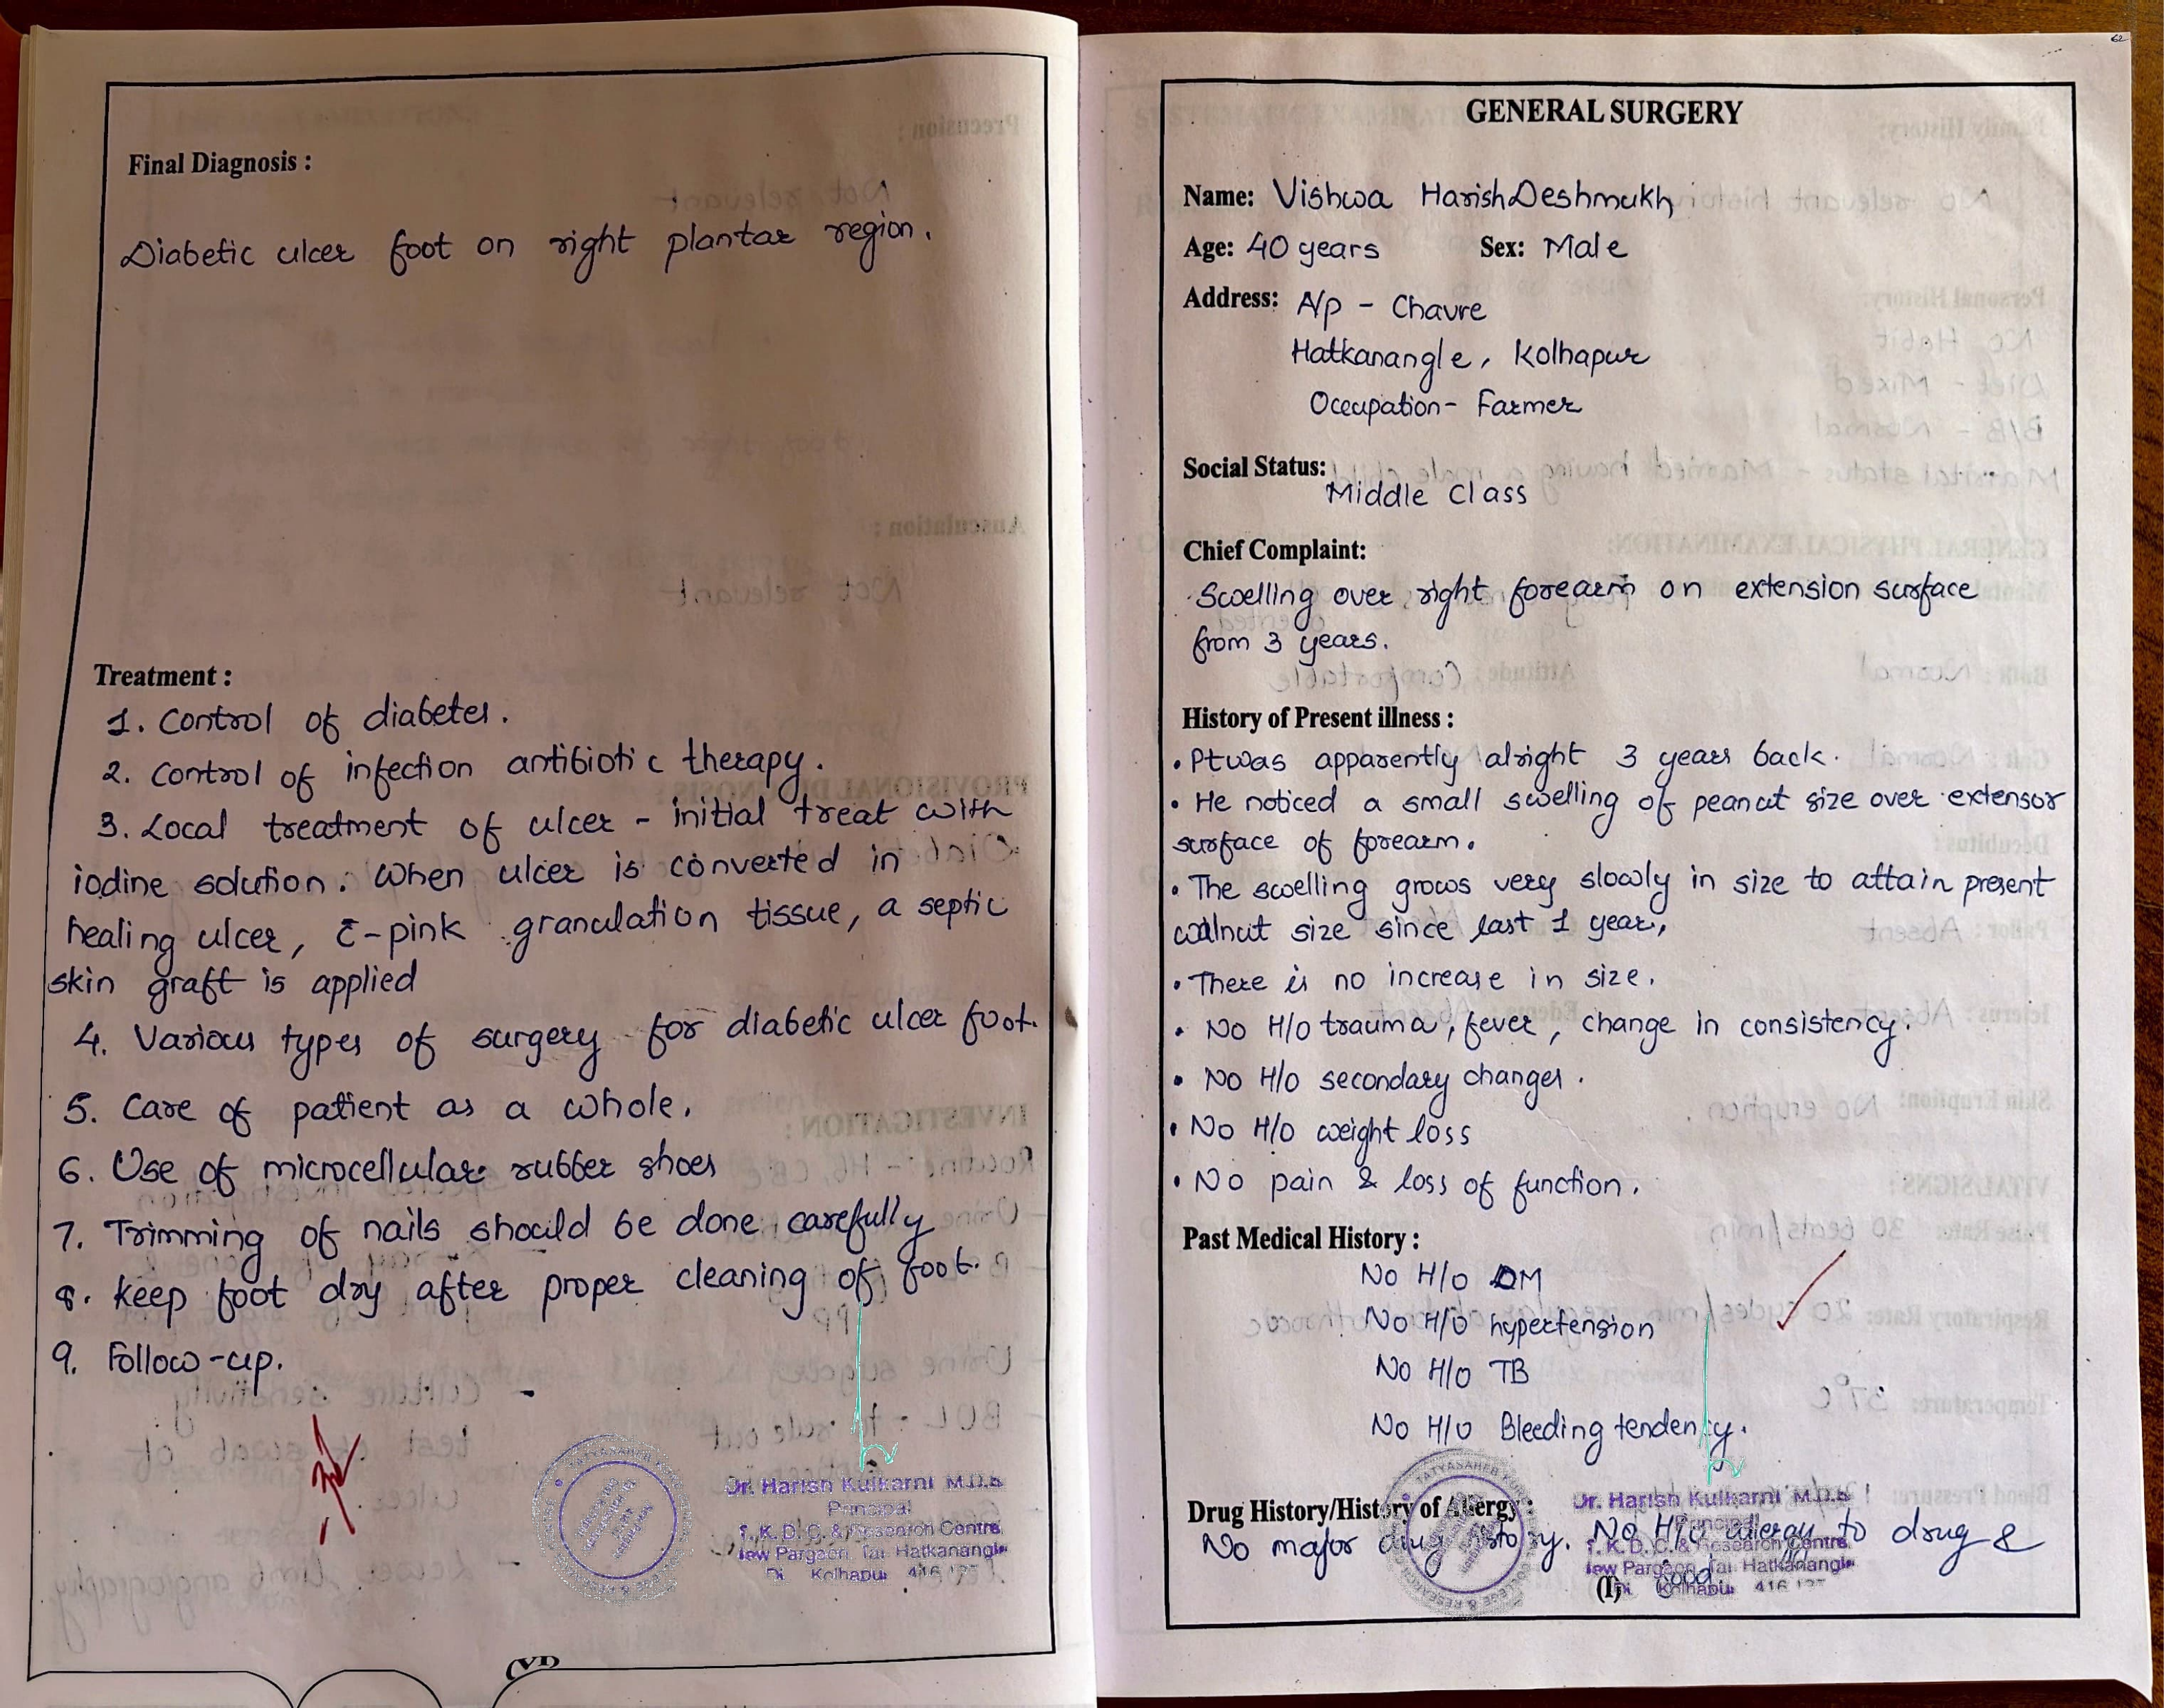 Final Diagnosis :
Diabetic ulcer foot on right plantar region.
Treatment :
1. Control of diabetes.
2. Control of infection antibiotic therapy.
3. Local treatment of ulcer - initial treat with
iodine solution. When ulcer is converted in
healing ulcer, c̄ - pink granulation tissue, a septic
skin graft is applied
4. Various types of surgery for diabetic ulcer foot.
5. Care of patient as a whole.
6. Use of microcellular rubber shoes
7. Trimming of nails should be done carefully
8. keep foot dry after proper cleaning of foot.
9. Follow-up.
Dr. Harish Kulkarni M.D.S
Principal
T. K. D. C. & Research Centre
New Pargaon, Tal. Hatkanangle
Di. Kolhapur 416 137
(VI)
62
GENERAL SURGERY
Name: Vishwa Harish Deshmukh
Age: 40 years Sex: Male
Address: A/p - Chavre
Hatkanangle, Kolhapur
Occupation - Farmer
Social Status:
Middle Class
Chief Complaint:
Swelling over right forearm on extension surface
from 3 years.
History of Present illness :
• Pt was apparently alright 3 years back.
• He noticed a small swelling of peanut size over extensor
surface of forearm.
• The swelling grows very slowly in size to attain present
walnut size since last 1 year,
• There is no increase in size.
• No H/o trauma, fever, change in consistency.
• No H/o secondary changes.
• No H/o weight loss
• No pain & loss of function.
Past Medical History :
No H/o DM
No H/o hypertension
No H/o TB
No H/o Bleeding tendency.
Drug History/History of Allergy :
No major drug history. No H/o allergy to drug &
food
(I)
TATYASAHEB
COLLEGE & RESEARCH
Dr. Harish Kulkarni M.D.S
Principal
T. K. D. C. & Research Centre
New Pargaon, Tal. Hatkanangle
Di. Kolhapur 416 137